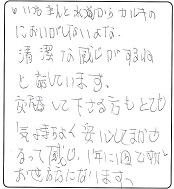 いつもきんと水道からカルキの
においがしないよな。
清潔な感じがするね
と話しています。
交換して下さる方もとても
気持ちよく 安心してまかせ
るって感じ、1年に1回ですが
お世話になります。